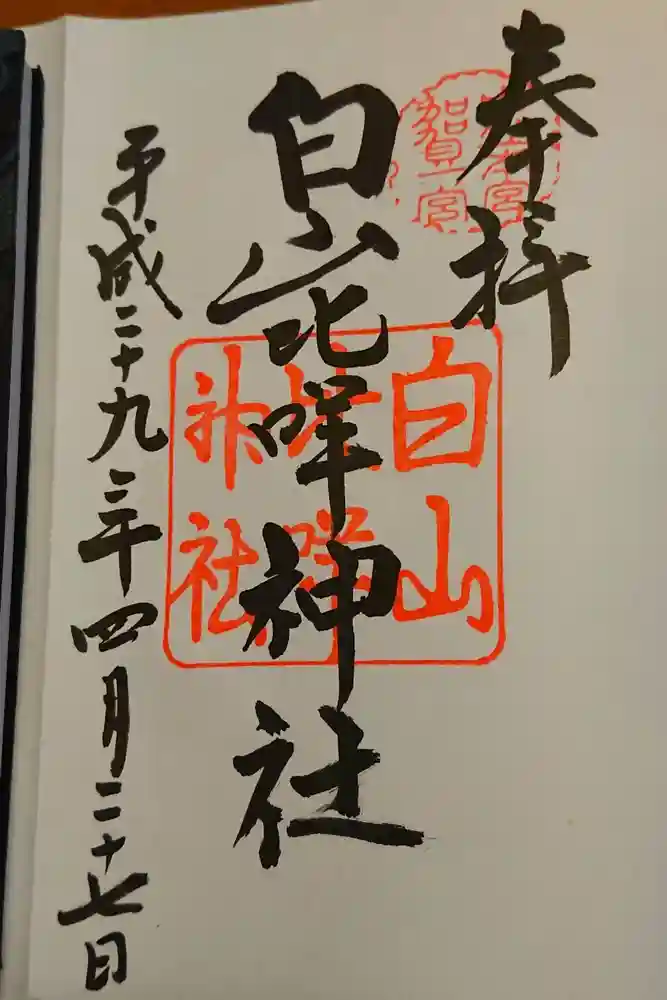 奉拝
賀宮
白山比咩神社
白山
比咩
神社
平成二十九年四月二十七日